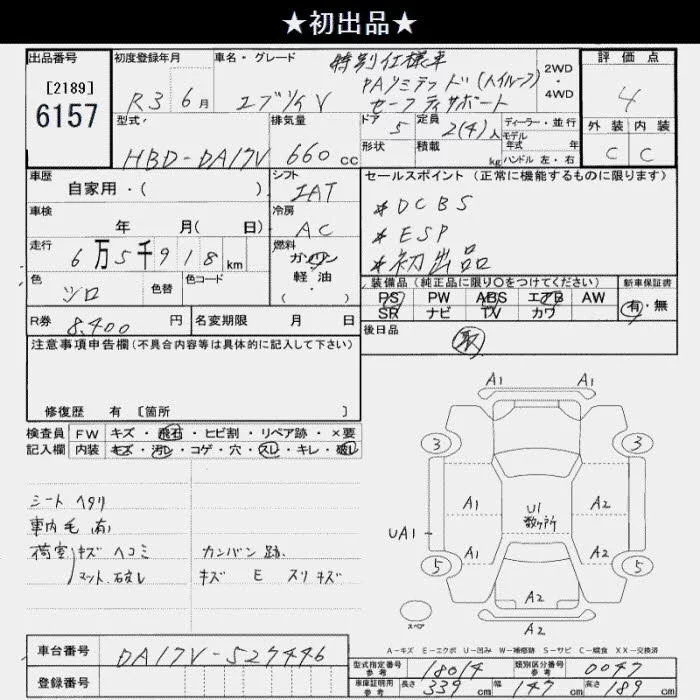 ★初出品★
出品番号
[2189]
6157
初度登録年月
R3 6月
車名・グレード
エブリイV
特別仕様車
PAリミテッド(ハイルーフ)
セーフティサポート
2WD
・
4WD
評価点
4
外装 内装
C C
型式
HBD-DA17V
排気量
660 cc
ドア 5
定員 2(4)人
形状
積載 kg
ディーラー・並行
モデル年式 年
ハンドル 左・右
車歴
自家用・( )
シフト
IAT
車検
年 月( 日)
冷房
AC
走行
6万5千918km
燃料
ガソリン
軽・油
( )
色
シロ
色替
色コード
R券 8,400 円
名変期限 月 日
セールスポイント(正常に機能するものに限ります)
*DCBS
*ESP
*初出品
装備品(純正品に限り〇をつけてください)
PS PW ABS エアB AW
SR ナビ TV カワ
新車保証書
有・無
後日品
取
注意事項申告欄(不具合内容等は具体的に記入して下さい)
修復歴 有 [箇所 ]
検査員
記入欄
FW キズ・飛石・ヒビ割・リペア跡・×要
内装 キズ・汚レ・コゲ・穴・スレ・キレ・破レ
シート ヘタリ
車内毛 有
荷室 キズ ヘコミ カンバン跡
マット、 キズ E スリキズ
A1 A1
3 3
A1 A2
U1
数ヶ所
UA1
A1 A2
5 5
A2
スペア
A2
A-キズ E-エクボ U-凹み W-補修跡 S-サビ C-腐食 XX-交換済
車台番号 DA17V-527446
登録番号
型式指定番号
参考
18014
類別区分番号
参考
0047
車庫証明用
参考
長さ 339 cm
幅 147 cm
高さ 189 cm